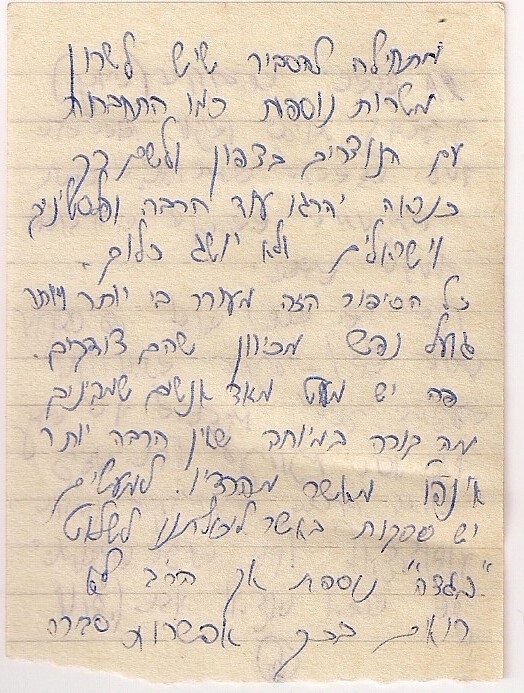 מתחילה להסביר שיש לשרון
מטרות נוספות כמו התחברות
עם הנוצרים בצפון ולשם כך
כנראה יהרגו עוד הרבה פלסטינים
וישראלים ולא יושג כלום.
כל הסיפור הזה מעורר בי יותר ויותר
גועל נפש מכיוון שהם צודקים.
פה יש מעט מאד אנשים שמבינים
מה קורה במיוחד שאין הרבה יותר
אינפו מאשר מהרדיו. למעטים
יש ספקות באשר ליכולתנו לשלוט
ב"גדה" נוספת אך הרב לא
רואים בכך אפשרות סבירה